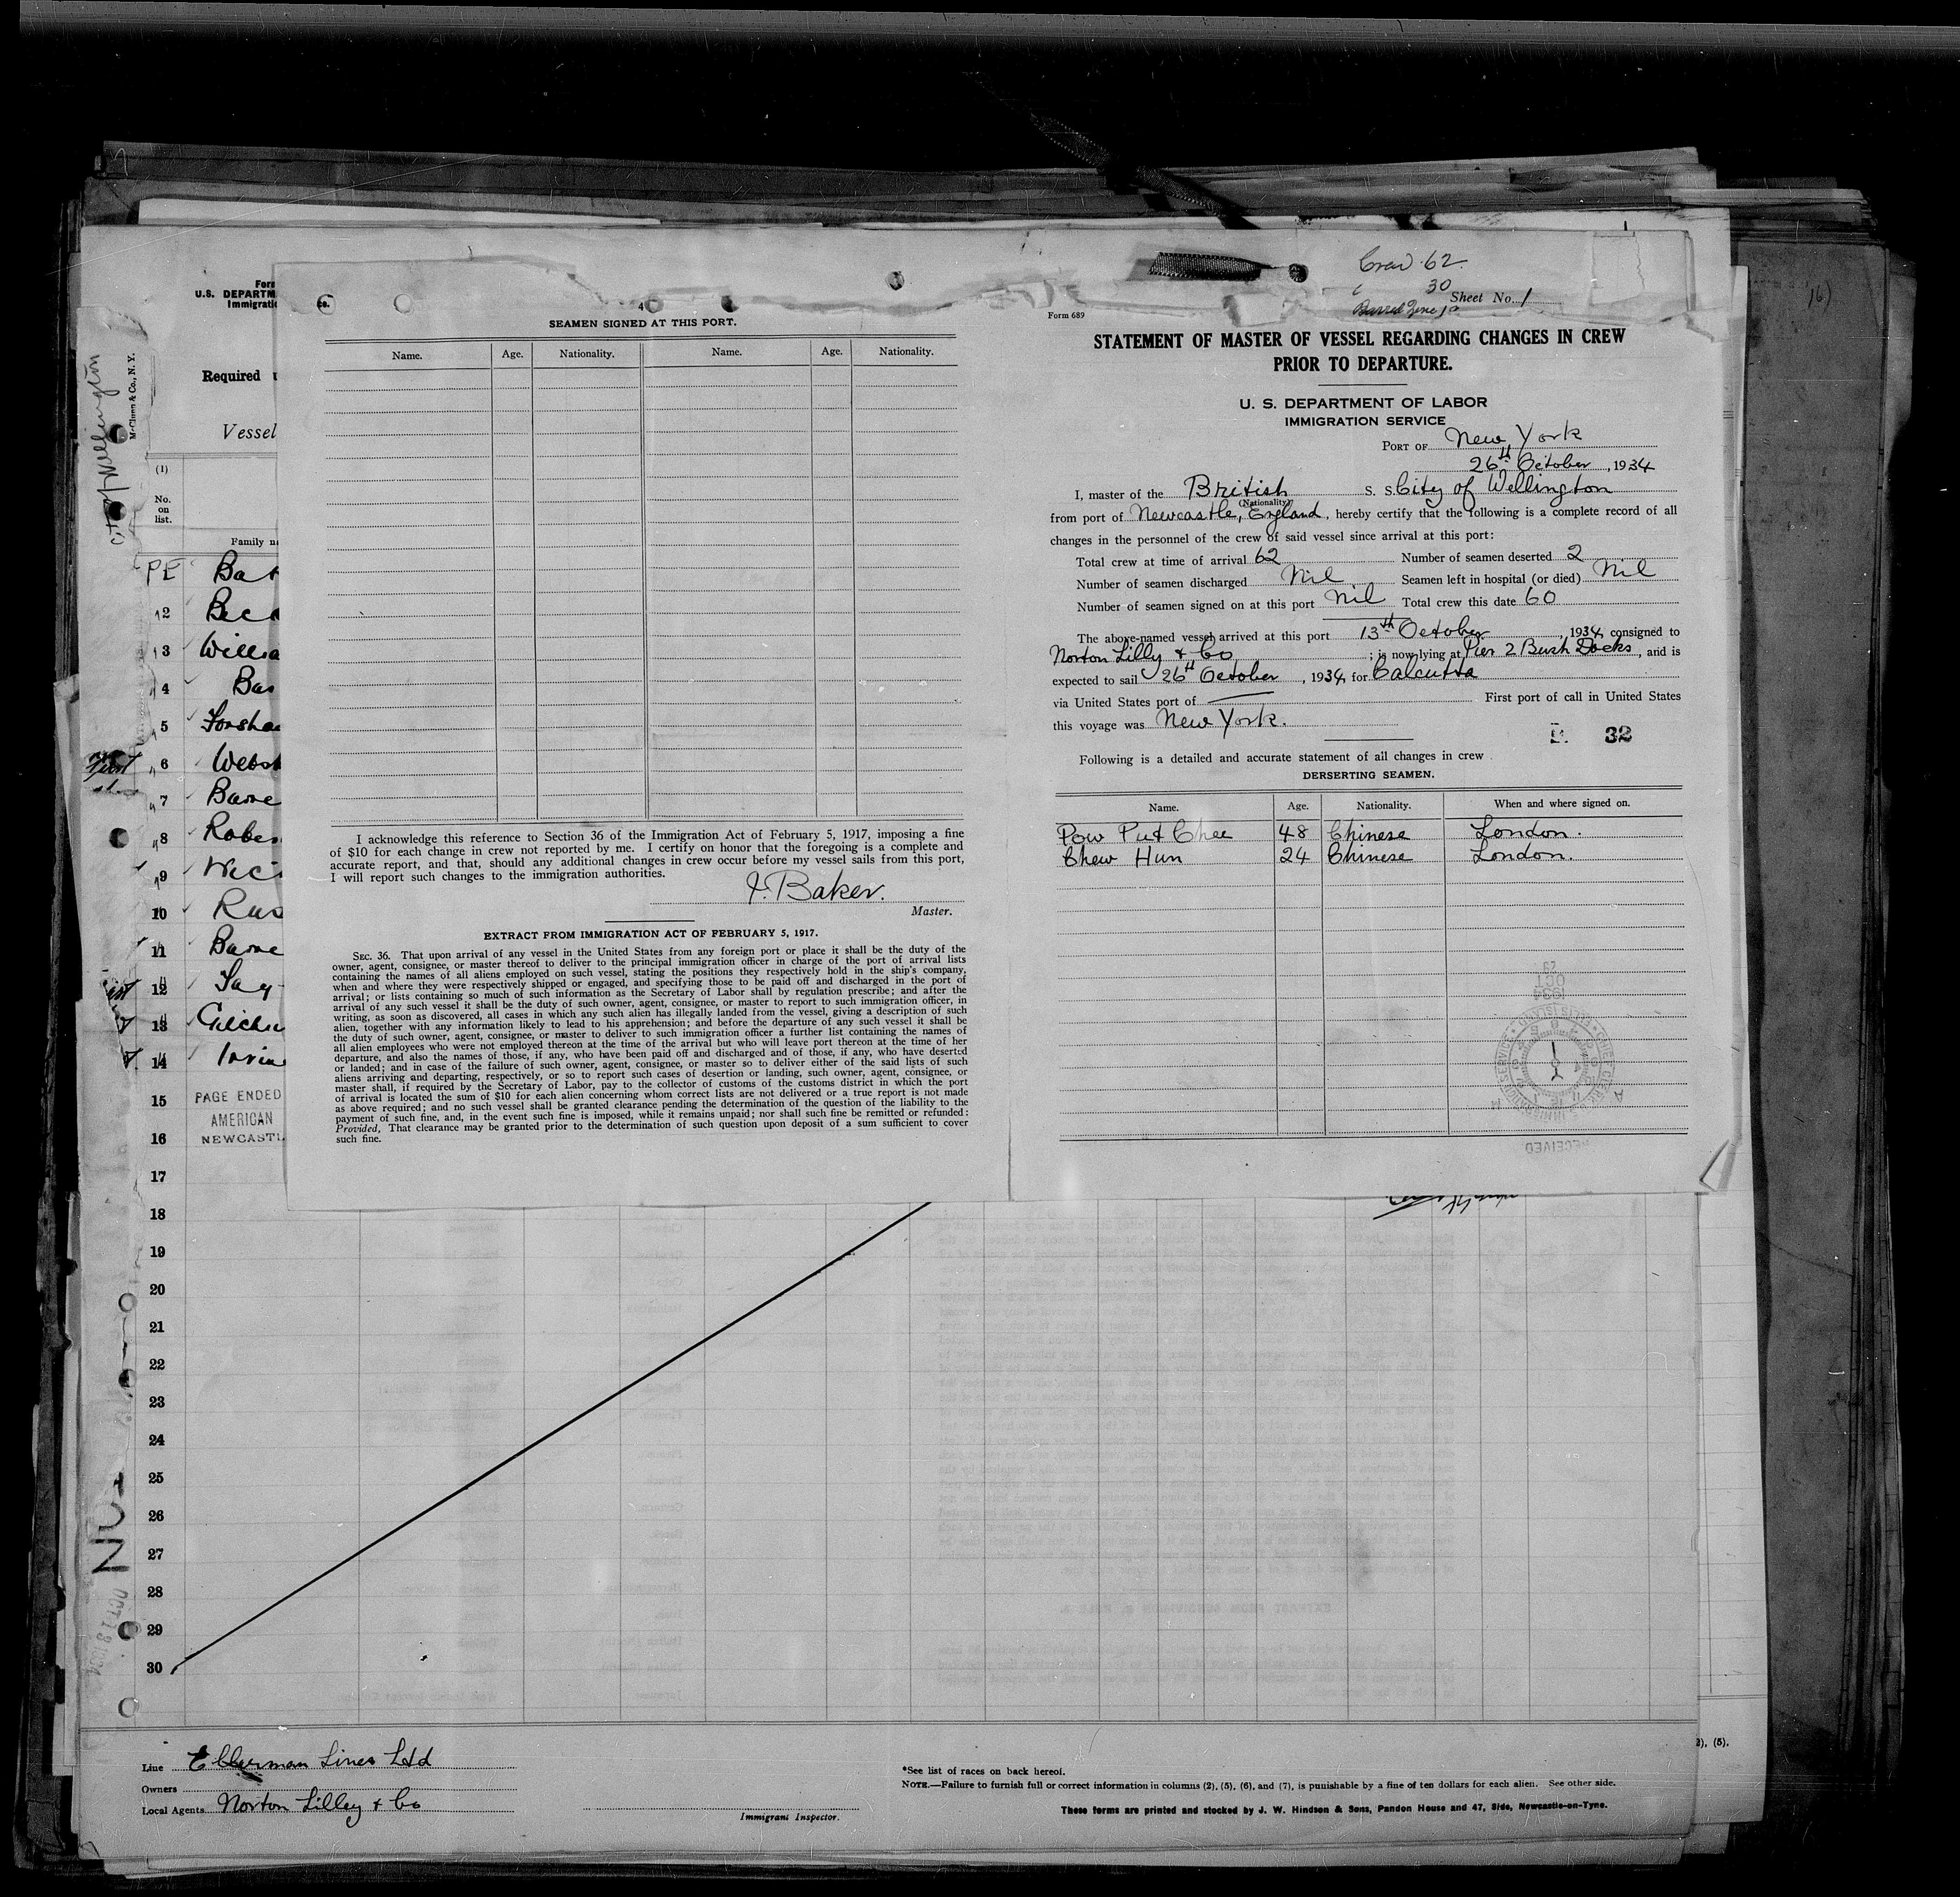 Crew 62.
30
Sheet No. 1
Form 689
STATEMENT OF MASTER OF VESSEL REGARDING CHANGES IN CREW
PRIOR TO DEPARTURE.
U. S. DEPARTMENT OF LABOR
IMMIGRATION SERVICE
PORT OF New York
26th October, 1934
I, master of the British S. S. City of Wellington
(Nationality)
from port of Newcastle, England, hereby certify that the following is a complete record of all
changes in the personnel of the crew of said vessel since arrival at this port:
Total crew at time of arrival 62 Number of seamen deserted 2
Number of seamen discharged Nil Seamen left in hospital (or died) Nil
Number of seamen signed on at this port Nil Total crew this date 60
The above-named vessel arrived at this port 13th October 1934, consigned to
Norton Lilly & Co ; is now lying at Pier 2 Bush Docks, and is
expected to sail 26th October, 1934, for Calcutta
via United States port of First port of call in United States
this voyage was New York.
32
Following is a detailed and accurate statement of all changes in crew
DERSERTING SEAMEN.
Name. Age. Nationality. When and where signed on.
Pow Put Chee 48 Chinese London.
Chew Hun 24 Chinese London.
1934
OCT
RECEIVED
4
SEAMEN SIGNED AT THIS PORT.
Name. Age. Nationality. Name. Age. Nationality.
I acknowledge this reference to Section 36 of the Immigration Act of February 5, 1917, imposing a fine
of $10 for each change in crew not reported by me. I certify on honor that the foregoing is a complete and
accurate report, and that, should any additional changes in crew occur before my vessel sails from this port,
I will report such changes to the immigration authorities.
J. Baker.
Master.
EXTRACT FROM IMMIGRATION ACT OF FEBRUARY 5, 1917.
SEC. 36. That upon arrival of any vessel in the United States from any foreign port or place it shall be the duty of the
owner, agent, consignee, or master thereof to deliver to the principal immigration officer in charge of the port of arrival lists
containing the names of all aliens employed on such vessel, stating the positions they respectively hold in the ship's company,
when and where they were respectively shipped or engaged, and specifying those to be paid off and discharged in the port of
arrival; or lists containing so much of such information as the Secretary of Labor shall by regulation prescribe; and after the
arrival of any such vessel it shall be the duty of such owner, agent, consignee, or master to report to such immigration officer, in
writing, as soon as discovered, all cases in which any such alien has illegally landed from the vessel, giving a description of such
alien, together with any information likely to lead to his apprehension; and before the departure of any such vessel it shall be
the duty of such owner, agent, consignee, or master to deliver to such immigration officer a further list containing the names of
all alien employees who were not employed thereon at the time of the arrival but who will leave port thereon at the time of her
departure, and also the names of those, if any, who have been paid off and discharged and of those, if any, who have deserted
or landed; and in case of the failure of such owner, agent, consignee, or master so to deliver either of the said lists of such
aliens arriving and departing, respectively, or so to report such cases of desertion or landing, such owner, agent, consignee, or
master shall, if required by the Secretary of Labor, pay to the collector of customs of the customs district in which the port
of arrival is located the sum of $10 for each alien concerning whom correct lists are not delivered or a true report is not made
as above required; and no such vessel shall be granted clearance pending the determination of the question of the liability to the
payment of such fine, and, in the event such fine is imposed, while it remains unpaid; nor shall such fine be remitted or refunded:
Provided, That clearance may be granted prior to the determination of such question upon deposit of a sum sufficient to cover
such fine.
Form
U.S. DEPARTM
Immigratio
Required u
Vessel
(1)
No.
on
list.
Family na
PE Bak
2 Beck
3 Willia
4 Bas
5 Forshaw
6 Webst
7 Barne
8 Rober
9 Nic
10 Rus
11 Barne
12 Jay
13 Gilchri
14 Irvine
15 PAGE ENDED
AMERICAN
16 NEWCASTL
17
18
19
20
21
22
23
24
25
26
27
28
29
30
McClunn & Co., N. Y.
City of Wellington
Line Ellerman Lines Ltd
Owners
Local Agents Norton Lilley & Co
Immigrant Inspector.
*See list of races on back hereof.
NOTE.—Failure to furnish full or correct information in columns (2), (5), (6), and (7), is punishable by a fine of ten dollars for each alien. See other side.
These forms are printed and stocked by J. W. Hindson & Sons, Pandon House and 47, Side, Newcastle-on-Tyne.
2), (5).